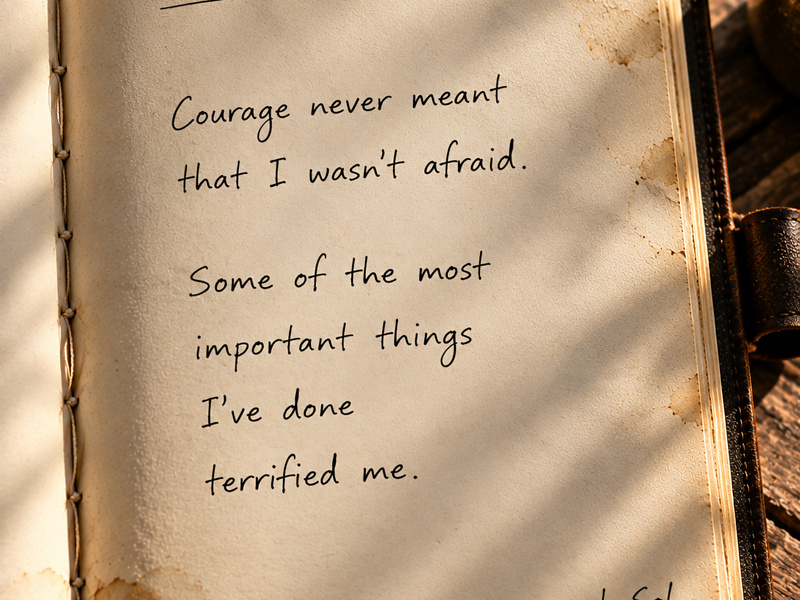 Courage never meant
that I wasn't afraid.
Some of the most
important things
I've done
terrified me.